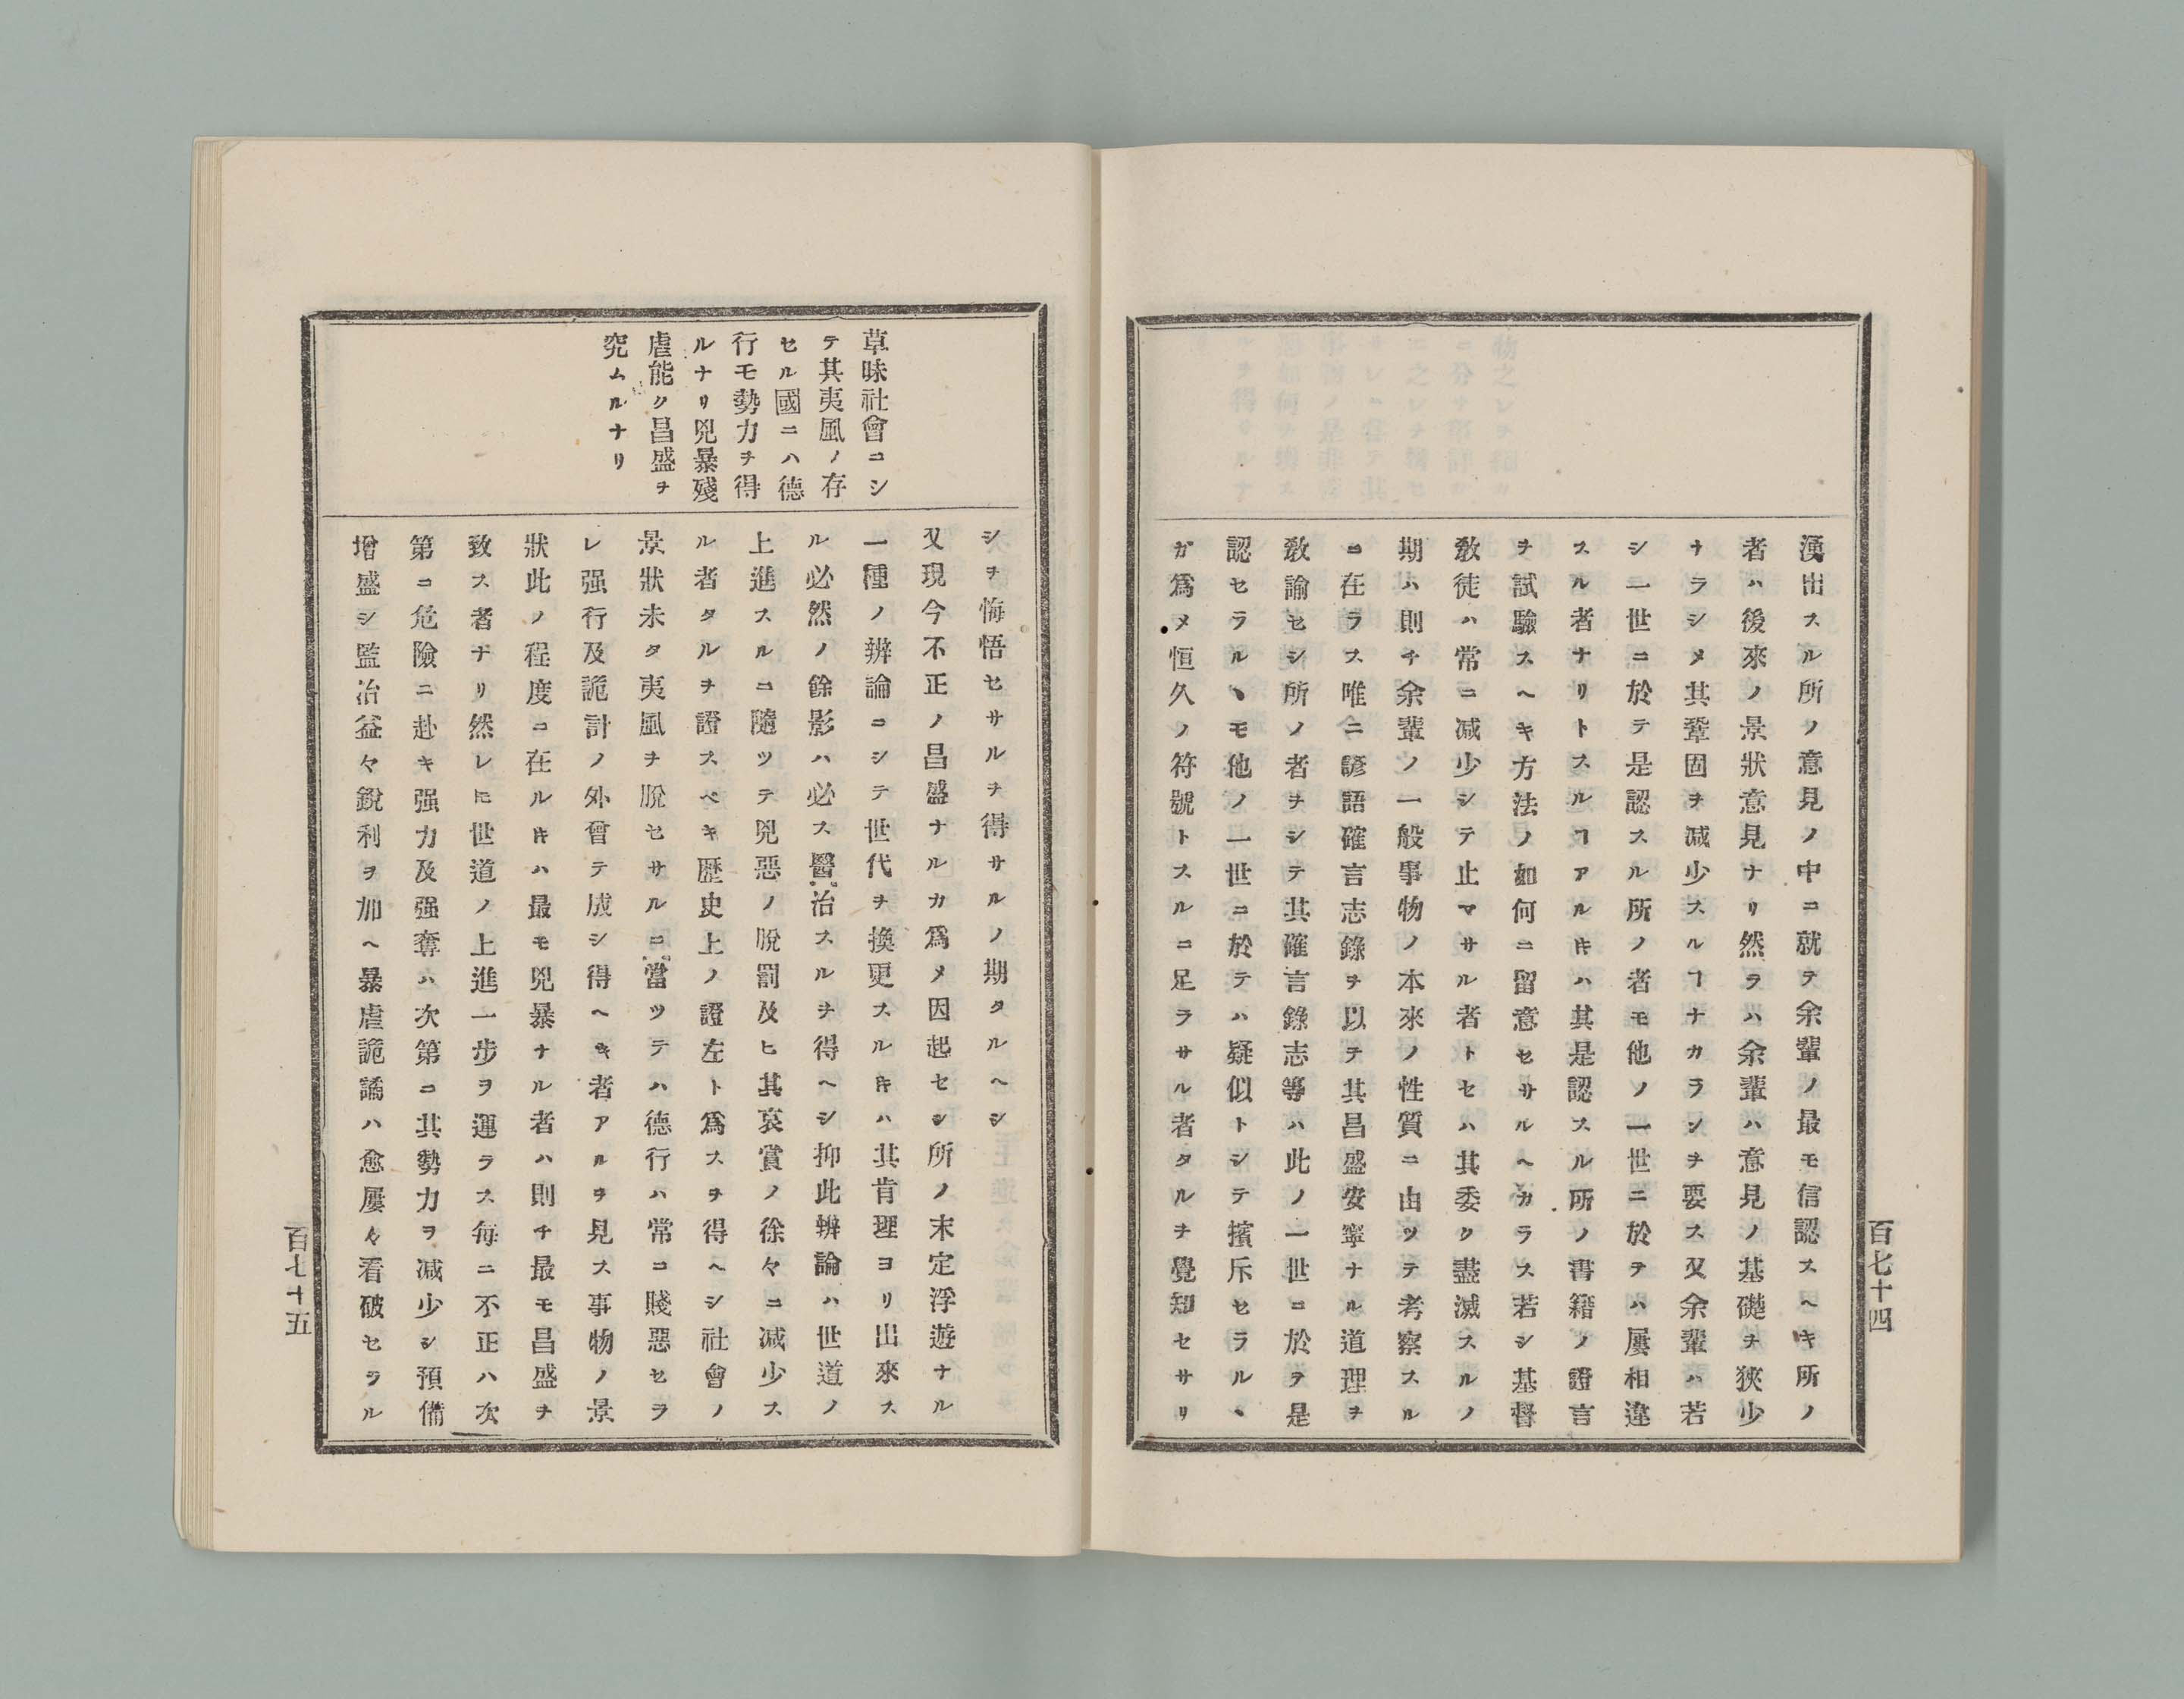 百七十四
湧出スル所ノ意見ノ中ニ就テ余輩ノ最モ信認スヘキ所ノ
者ハ後來ノ景狀意見ナリ然ラハ余輩ハ意見ノ基礎ヲ狹少
ナラシメ其鞏固ヲ減少スルヿナカランヲ要ス又余輩ハ若
シ一世ニ於テ是認スル所ノ者モ他ノ一世ニ於ヲハ屢相違
スル者ナリトスルヿアルキハ其是認スル所ノ書籍ノ證言
ヲ試驗スヘキ方法ノ如何ニ留意セサルヘカラス若シ基督
敎徒ハ常ニ减少シテ止マサル者トセハ其委ク盡滅スルノ
期ハ則チ余輩ノ一般事物ノ本來ノ性質ニ由ツテ考察スル
ニ在ラス唯ニ諺語確言志錄ヲ以テ其昌盛安寧ナル道理ヲ
敎諭セシ所ノ者ヲシテ其確言錄志等ハ此ノ一世ニ於ヲ是
認セラルヽモ他ノ一世ニ於テハ疑似トシテ擯斥セラルヽ
ガ爲メ恒久ノ符號トスルニ足ラサル者タルヲ覺知セサリ
シヲ悔悟セサルヲ得サルノ期タルヘシ
又現今不正ノ昌盛ナルカ爲メ因起セシ所ノ末定浮遊ナル
一種ノ辨論ニシテ世代ヲ換更スルキハ其肯理ヨリ出來ス
ル必然ノ餘影ハ必ス醫治スルヲ得ヘシ抑此辨論ハ世道ノ
上進スルニ隨ツテ兇惡ノ脫罰及ヒ其哀賞ノ徐々ニ減少ス
ル者タルヲ證スベキ歷史上ノ證左ト爲スヲ得ヘシ社會ノ
景狀未タ夷風ヲ脫セサルニ當ツテハ德行ハ常ニ賤惡セラ
レ强行及詭計ノ外曾テ成シ得ヘキ者アルヲ見ス事物ノ景
狀此ノ程度ニ在ルキハ最モ兇暴ナル者ハ則チ最モ昌盛ヲ
致ス者ナリ然レ𪜈世道ノ上進一步ヲ運ラス每ニ不正ハ次
第ニ危險ニ赴キ强力及强奪ハ次第ニ其勢力ヲ减少シ預備
增盛シ監冶益々銳利ヲ加ヘ暴虐詭譎ハ愈屢々看破セラル
草昧社會ニシ
テ其夷風ノ存
セル國ニハ德
行モ勢力ヲ得
ルナリ兇暴殘
虐能ク昌盛ヲ
究ムルナリ
百七十五